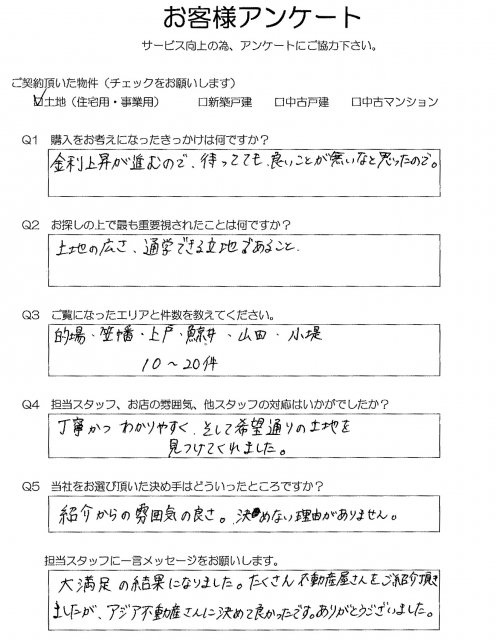 お客様アンケート
サービス向上の為、アンケートにご協力下さい。
ご契約頂いた物件（チェックをお願いします）
☑土地（住宅用・事業用）　□新築戸建　□中古戸建　□中古マンション
Q1　購入をお考えになったきっかけは何ですか？
金利上昇が進むので、待ってても、良いことが無いなと思ったので。
Q2　お探しの上で最も重要視されたことは何ですか？
土地の広さ、通学できる立地であること。
Q3　ご覧になったエリアと件数を教えてください。
的場・笠幡・上戸・鯨井・山田・小堤
10～20件
Q4　担当スタッフ、お店の雰囲気、他スタッフの対応はいかがでしたか？
丁寧かつ わかりやすく、そして希望通りの土地を
見つけてくれました。
Q5　当社をお選び頂いた決め手はどういったところですか？
紹介からの雰囲気の良さ。決めない理由がありません。
担当スタッフに一言メッセージをお願いします。
大満足の結果になりました。たくさん不動産屋さんをご紹介頂き
ましたが、アジア不動産さんに決めて良かったです。ありがとうございました。